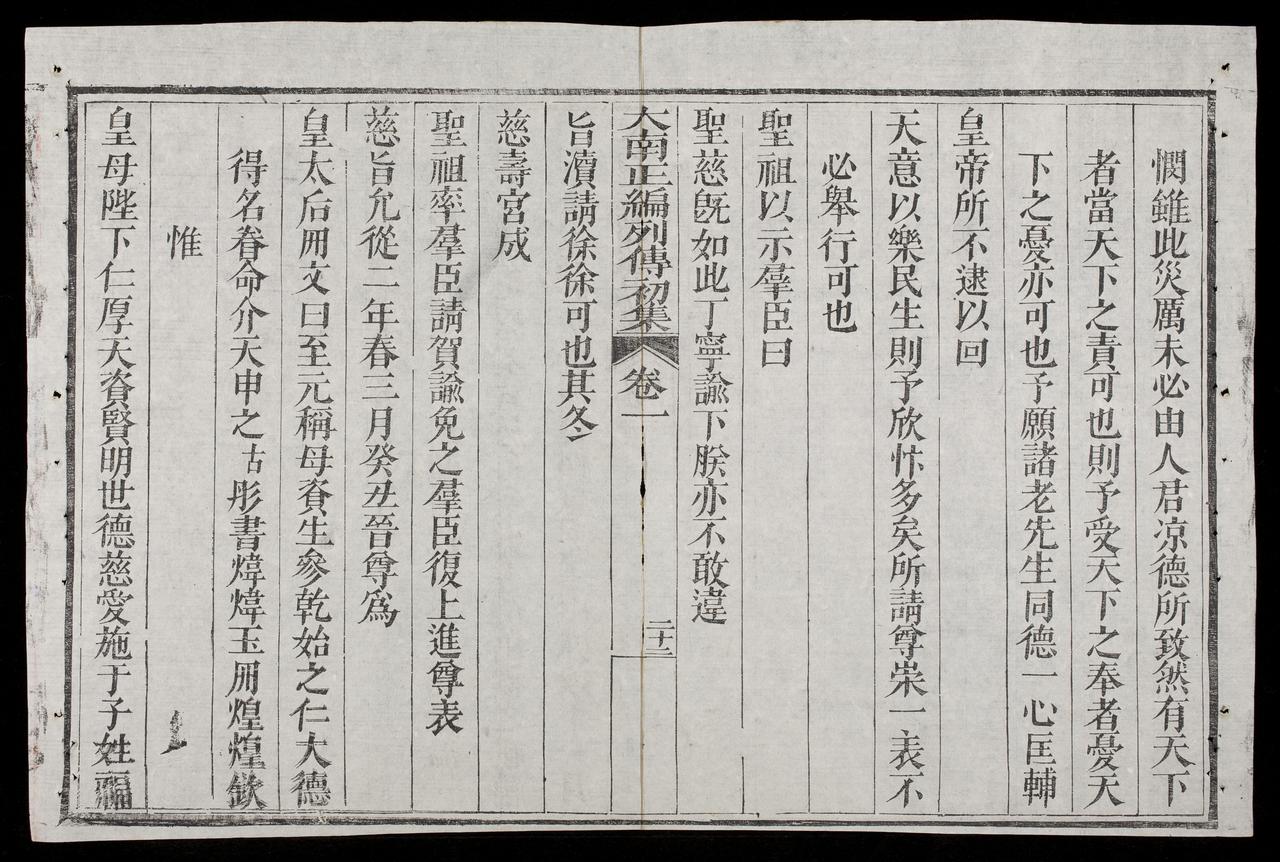 憫雖此災厲未必由人君凉德所致然有天下
者當天下之責可也則予受天下之奉者憂天
下之憂亦可也予願諸老先生同德一心匡輔
皇帝所不逮以回
天意以樂民生則予欣忭多矣所請尊崇一表不
必舉行可也
聖祖以示羣臣曰
聖慈旣如此丁寧諭下朕亦不敢違
大南正編列傳初集 卷一 二十二
旨瀆請徐徐可也其冬
慈壽宮成
聖祖率羣臣請賀諭免之羣臣復上進尊表
慈旨允從二年春三月癸丑晉尊爲
皇太后冊文曰至元稱母資生參乾始之仁大德
得名眷命介天申之古彤書煒煒玉冊煌煌欽
惟
皇母陛下仁厚天資賢明世德慈愛施于子姓